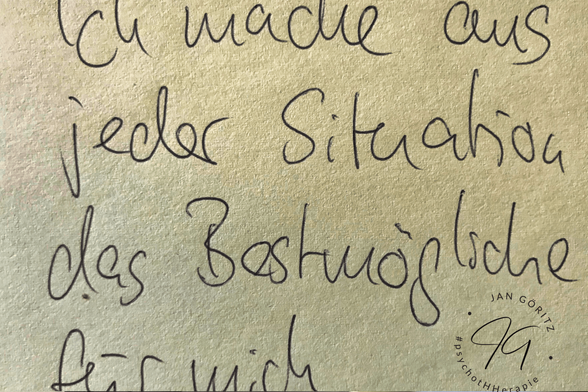 Ich mache aus
jeder Situation
das Bestmögliche
für mich
JAN GÖRITZ
#psychotHHerapie